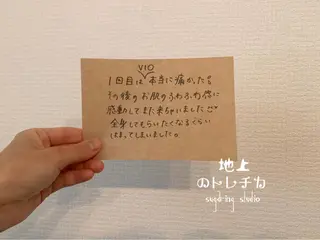 VIO
1回目は本当に痛かったけど
その後のお肌のうわぁ、力作に
感動してまた来ちゃいました
全身してもらいたくなるくらい
はまってしまいました。
地上
のトレチカ
sugaring studio